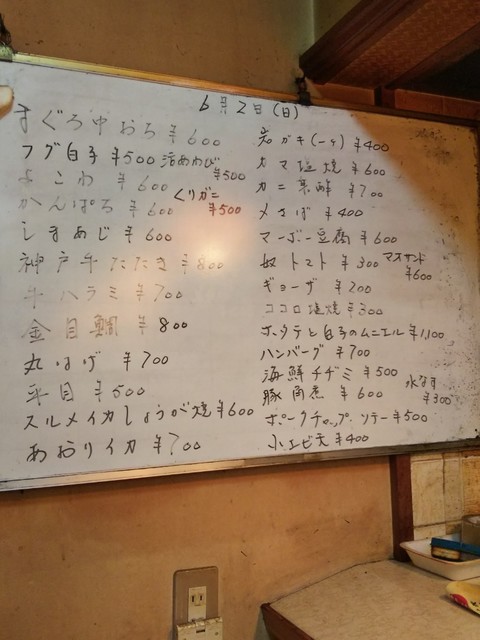 6月2日(日)
まぐろ中おち ¥600
フグ白子 ¥500 活あわび ¥500
よこわ ¥600
かんぱち ¥600 くりガニ ¥500
しまあじ ¥600
神戸牛たたき ¥800
牛ハラミ ¥700
金目鯛 ¥800
丸はげ ¥700
平目 ¥500
スルメイカしょうが焼 ¥600
あおりイカ ¥700
岩ガキ(一ヶ) ¥400
カマ塩焼 ¥600
カニ酢 ¥700
〆さば ¥400
マーボー豆腐 ¥600
奴トマト ¥300
¥600
ギョーザ ¥200
ココロ塩焼 ¥300
ホタテと白子のムニエル ¥1,100
ハンバーグ ¥700
海鮮チヂミ ¥500
水なす ¥300
豚角煮 ¥600
ポークチャップ・ソテー ¥500
小エビ天 ¥400